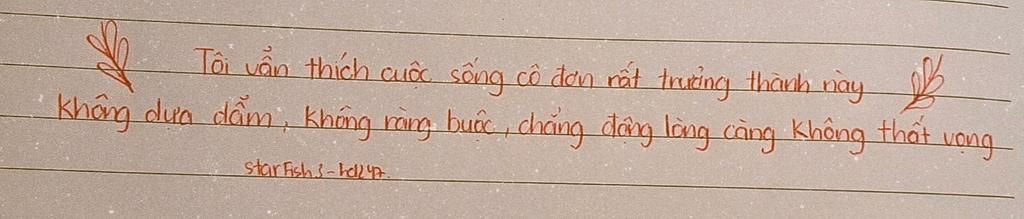 Tôi vẫn thích cuộc sống cô đơn rất trưởng thành này
Không dựa dẫm, không ràng buộc, chẳng động lòng càng không thất vọng
starfish